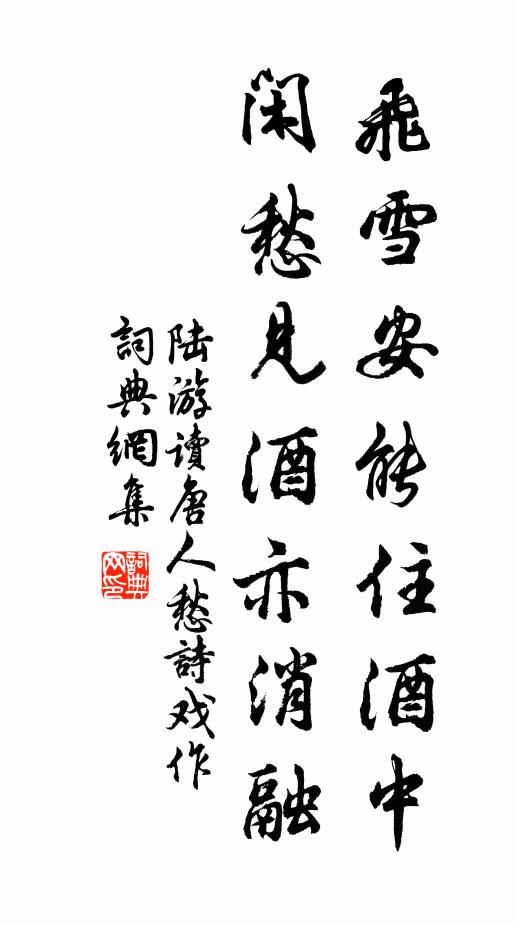 飛雪安能住酒中
閑愁見酒亦消融
陆游讀唐人愁詩戏作
詞典網集
詞典
网印